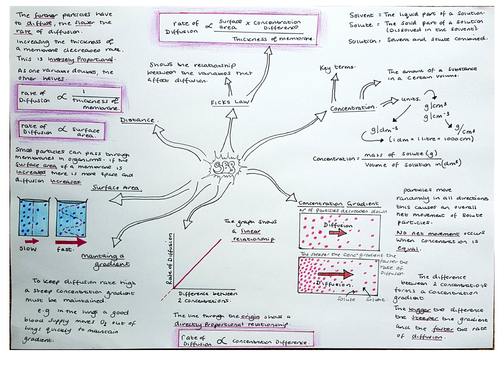 The further particles have
to diffuse, the slower the
rate of diffusion.
Increasing the thickness of
a membrane decreases rate.
This is Inversely Proportional.
As one variable doubles, the
other halves.
rate of Diffusion ∝ 1
Thickness of membrane
rate of Diffusion ∝ Surface area.
Small particles can pass through
membranes in organisms. If the
Surface area of a membrane is
increased there is more space and
diffusion increases
Surface Area
slow
fast.
Maintaining a
gradient
To keep diffusion rate high
a steep concentration gradient
must be maintained
e.g in the lungs a good
blood supply moves O2 out of
lungs quickly to maintain
gradient.
Distance
rate of Diffusion ∝ Surface area × Concentration Difference
Thickness of membrane
Shows the relationship
between the variables that
affect diffusion.
FICKS LAW
The graph shows
a linear
relationship
Rate of Diffusion
Difference between
2 Concentrations.
The line through the origin shows a
directly Proportional relationship
rate of Diffusion ∝ Concentration Difference.
Solvent = The liquid part of a Solution.
Solute = The Solid part of a Solution
(Dissolved in the Solvent)
Solution = Solvent and solute Combined.
Key terms
Concentration
The amount of a Substance
in a Certain volume.
units.
g/cm³
g/cm⁻³
g/dm⁻³
(1dm = 1 litre = 1000 cm)
Concentration = mass of solute (g)
Volume of Solution in (dm³)
Concentration Gradient
N° of particles decreases down
Diffusion
Diffusion.
Solute
Solvent
particles move
randomly in all directions
this causes an overall
net movement of solute
particles.
No net movement occurs
when Concentration is
equal.
The difference
between 2 concentrations
forms a concentration
gradient
The bigger the difference
the steeper the gradient
and the faster the rate
of diffusion.